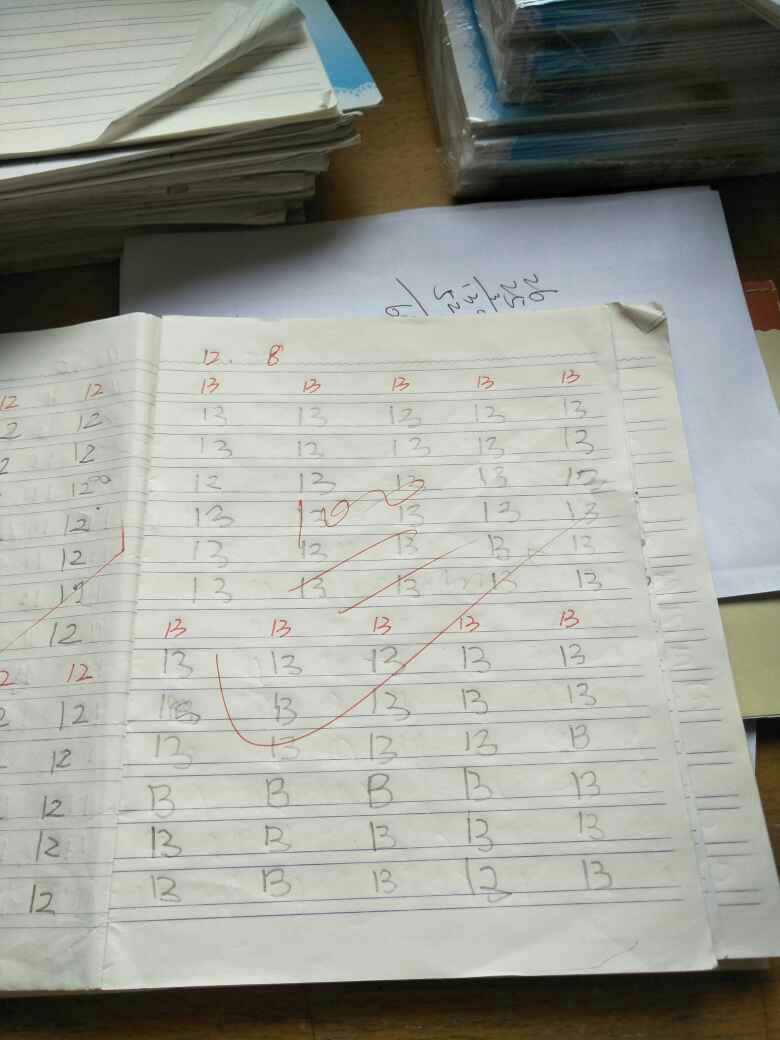 26
25
12. 8
12 12 13 13 13 13 13
2 12 13 13 13 13 13
2 12 13 12 13 13 13
12 12 13 13 13 13
12 13 12 13 13 13
100
12 13 12 13 13 13
12 13 13 13 13 13
12 13 13 13 13 13
13 13 12 13 13
2 12 13 13 13 13
2 12 13 13 13 13 13
12 13 13 13 13 13
12 13 13 13 13 13
12 13 13 13 13 13
12 13 13 13 12 13